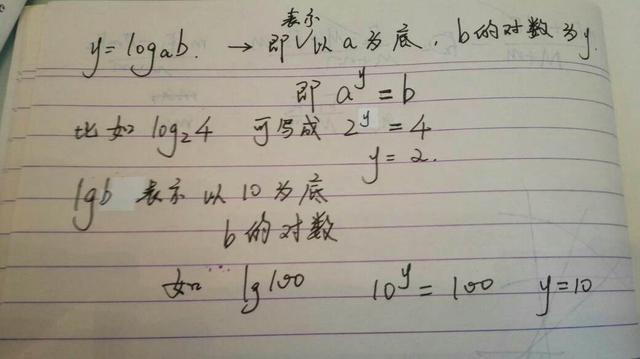 y=logₐb. → 即表示以a为底,b的对数为y.
即 aʸ=b
比如 log₂4 可写成 2ʸ=4
y=2.
lgb 表示以10为底
b的对数
如 lg100 10ʸ=100 y=10